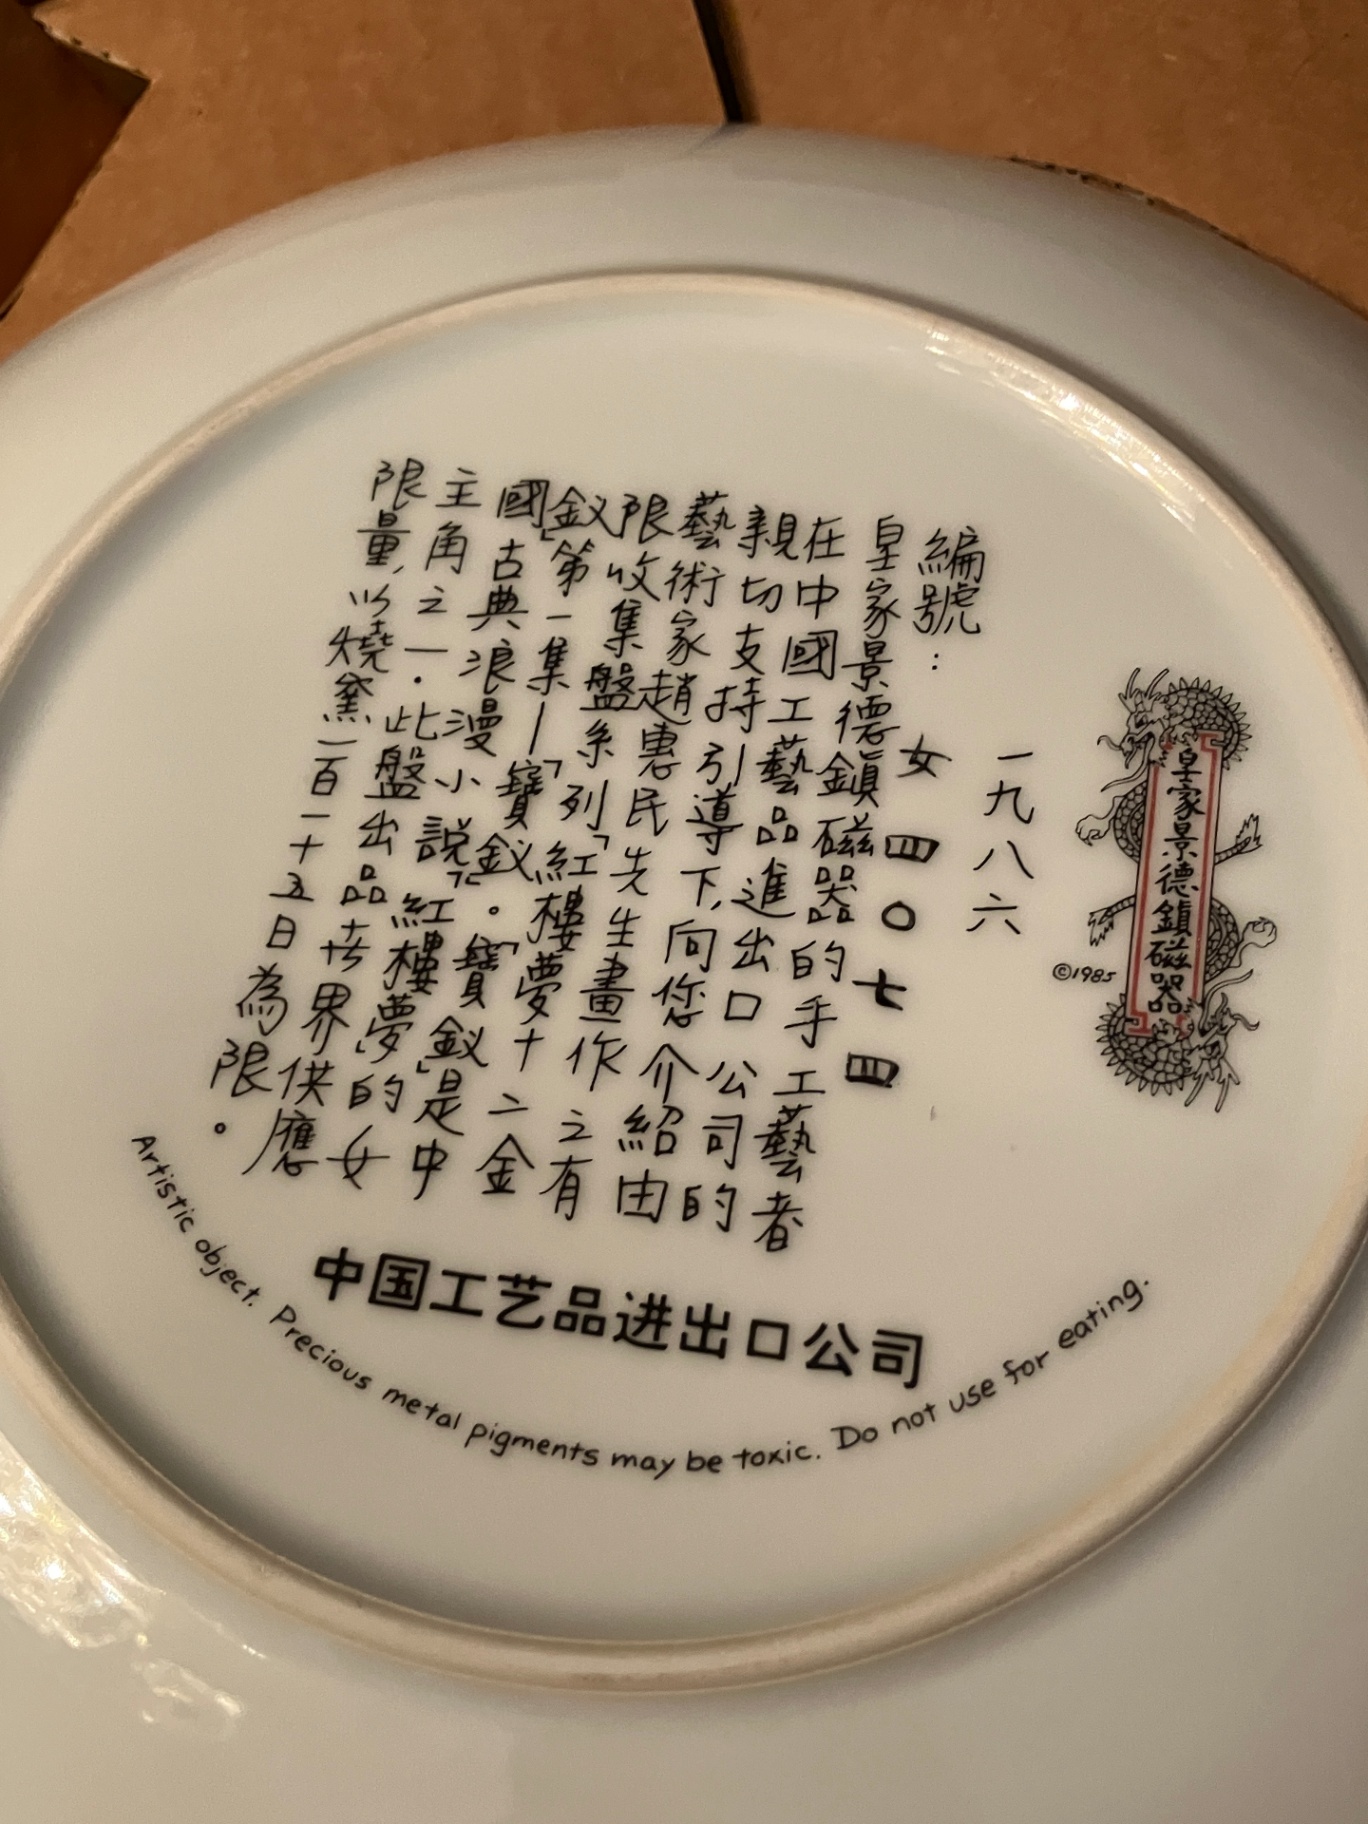 皇家景德鎮磁器
©1985
一九八六
編號:女四〇七四
皇家景德鎮磁器的手工藝者
在中國工藝品進出口公司的
親切支持引導下,向您介紹由
藝術家趙惠民先生畫作之有
限收集盤系列「紅樓夢十二金
釵」第一集—「寶釵」。「寶釵」是中
國古典浪漫小說「紅樓夢」的女
主角之一。此盤出品世界供應
限量,以燒窯一百一十五日為限。
中国工艺品进出口公司
Artistic object. Precious metal pigments may be toxic. Do not use for eating.